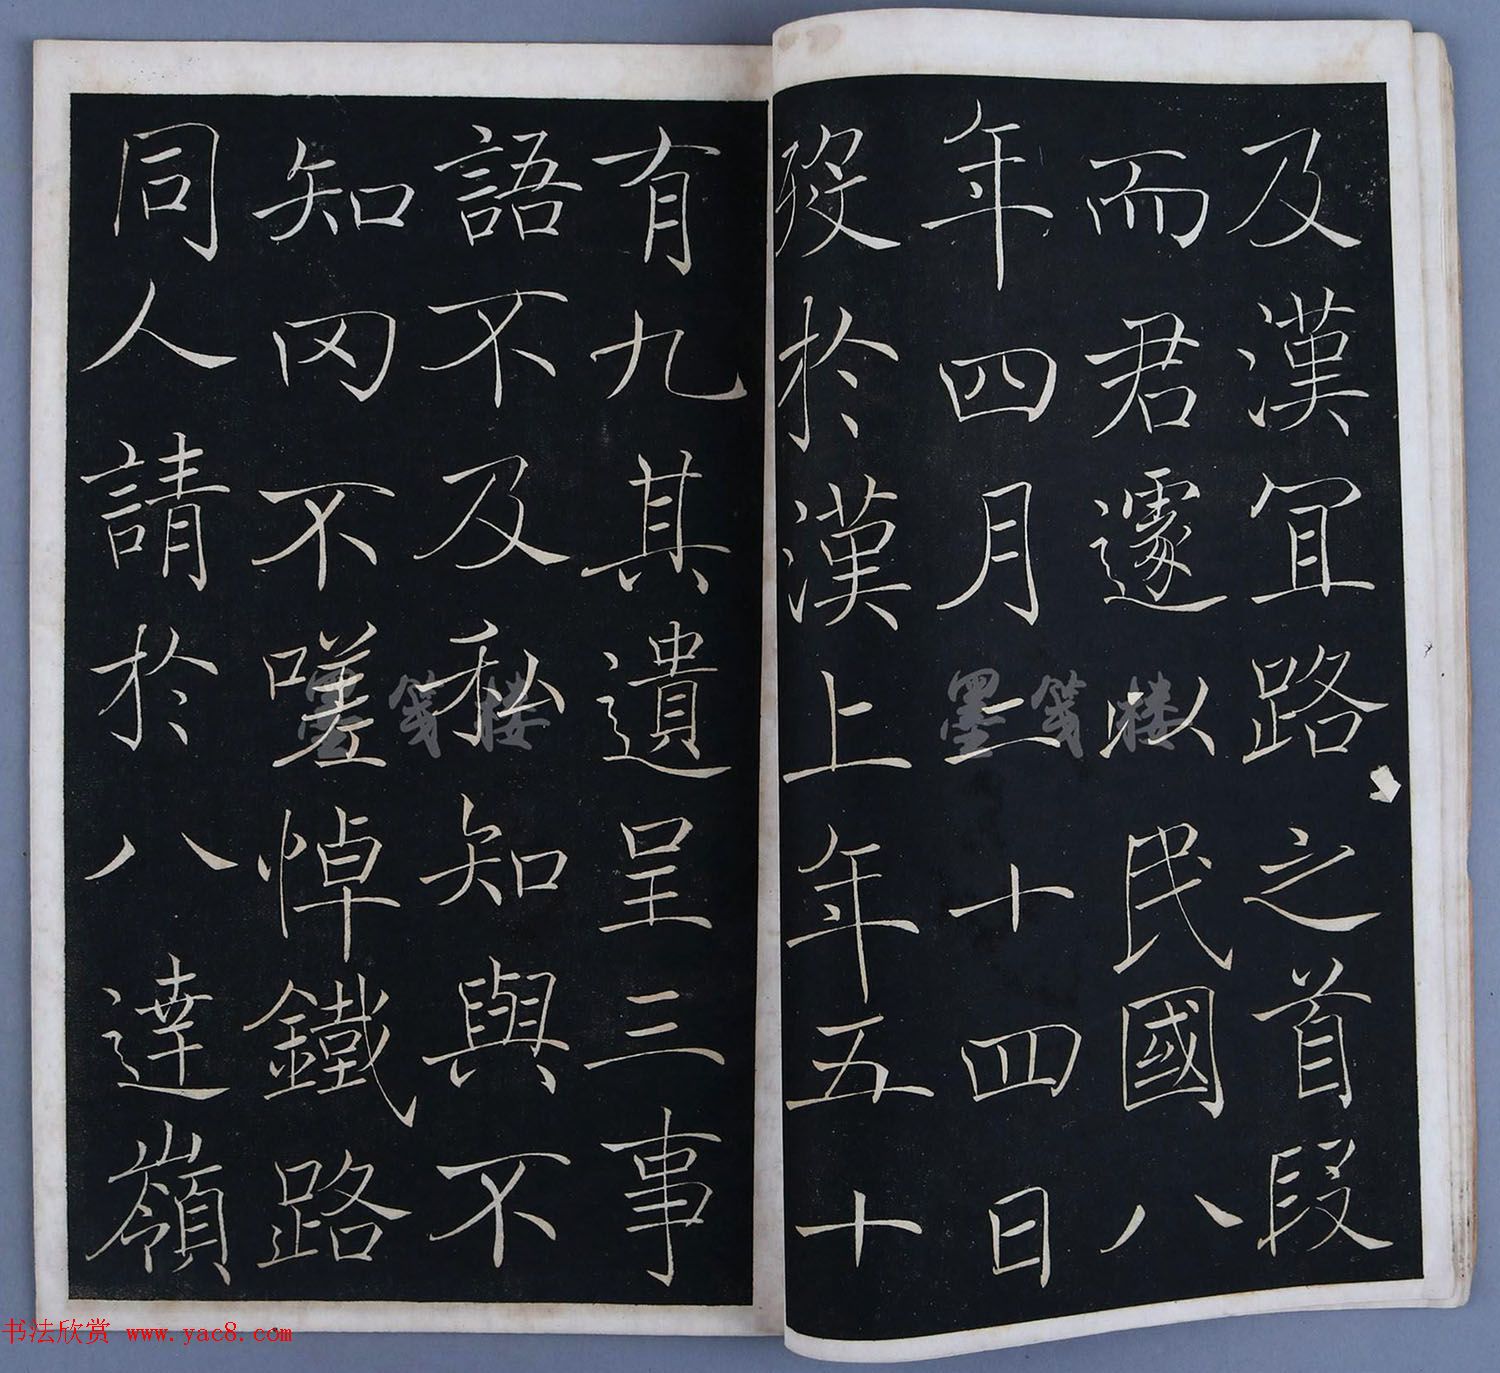 及漢冝路之首段
而君遽以民國八
年四月二十四日
歿於漢上年五十
有九其遺呈三事
語不及私知與不
知罔不嗟悼鐵路
同人請於八達嶺
墨箋楼
墨箋楼
书法欣赏 www.yac8.com